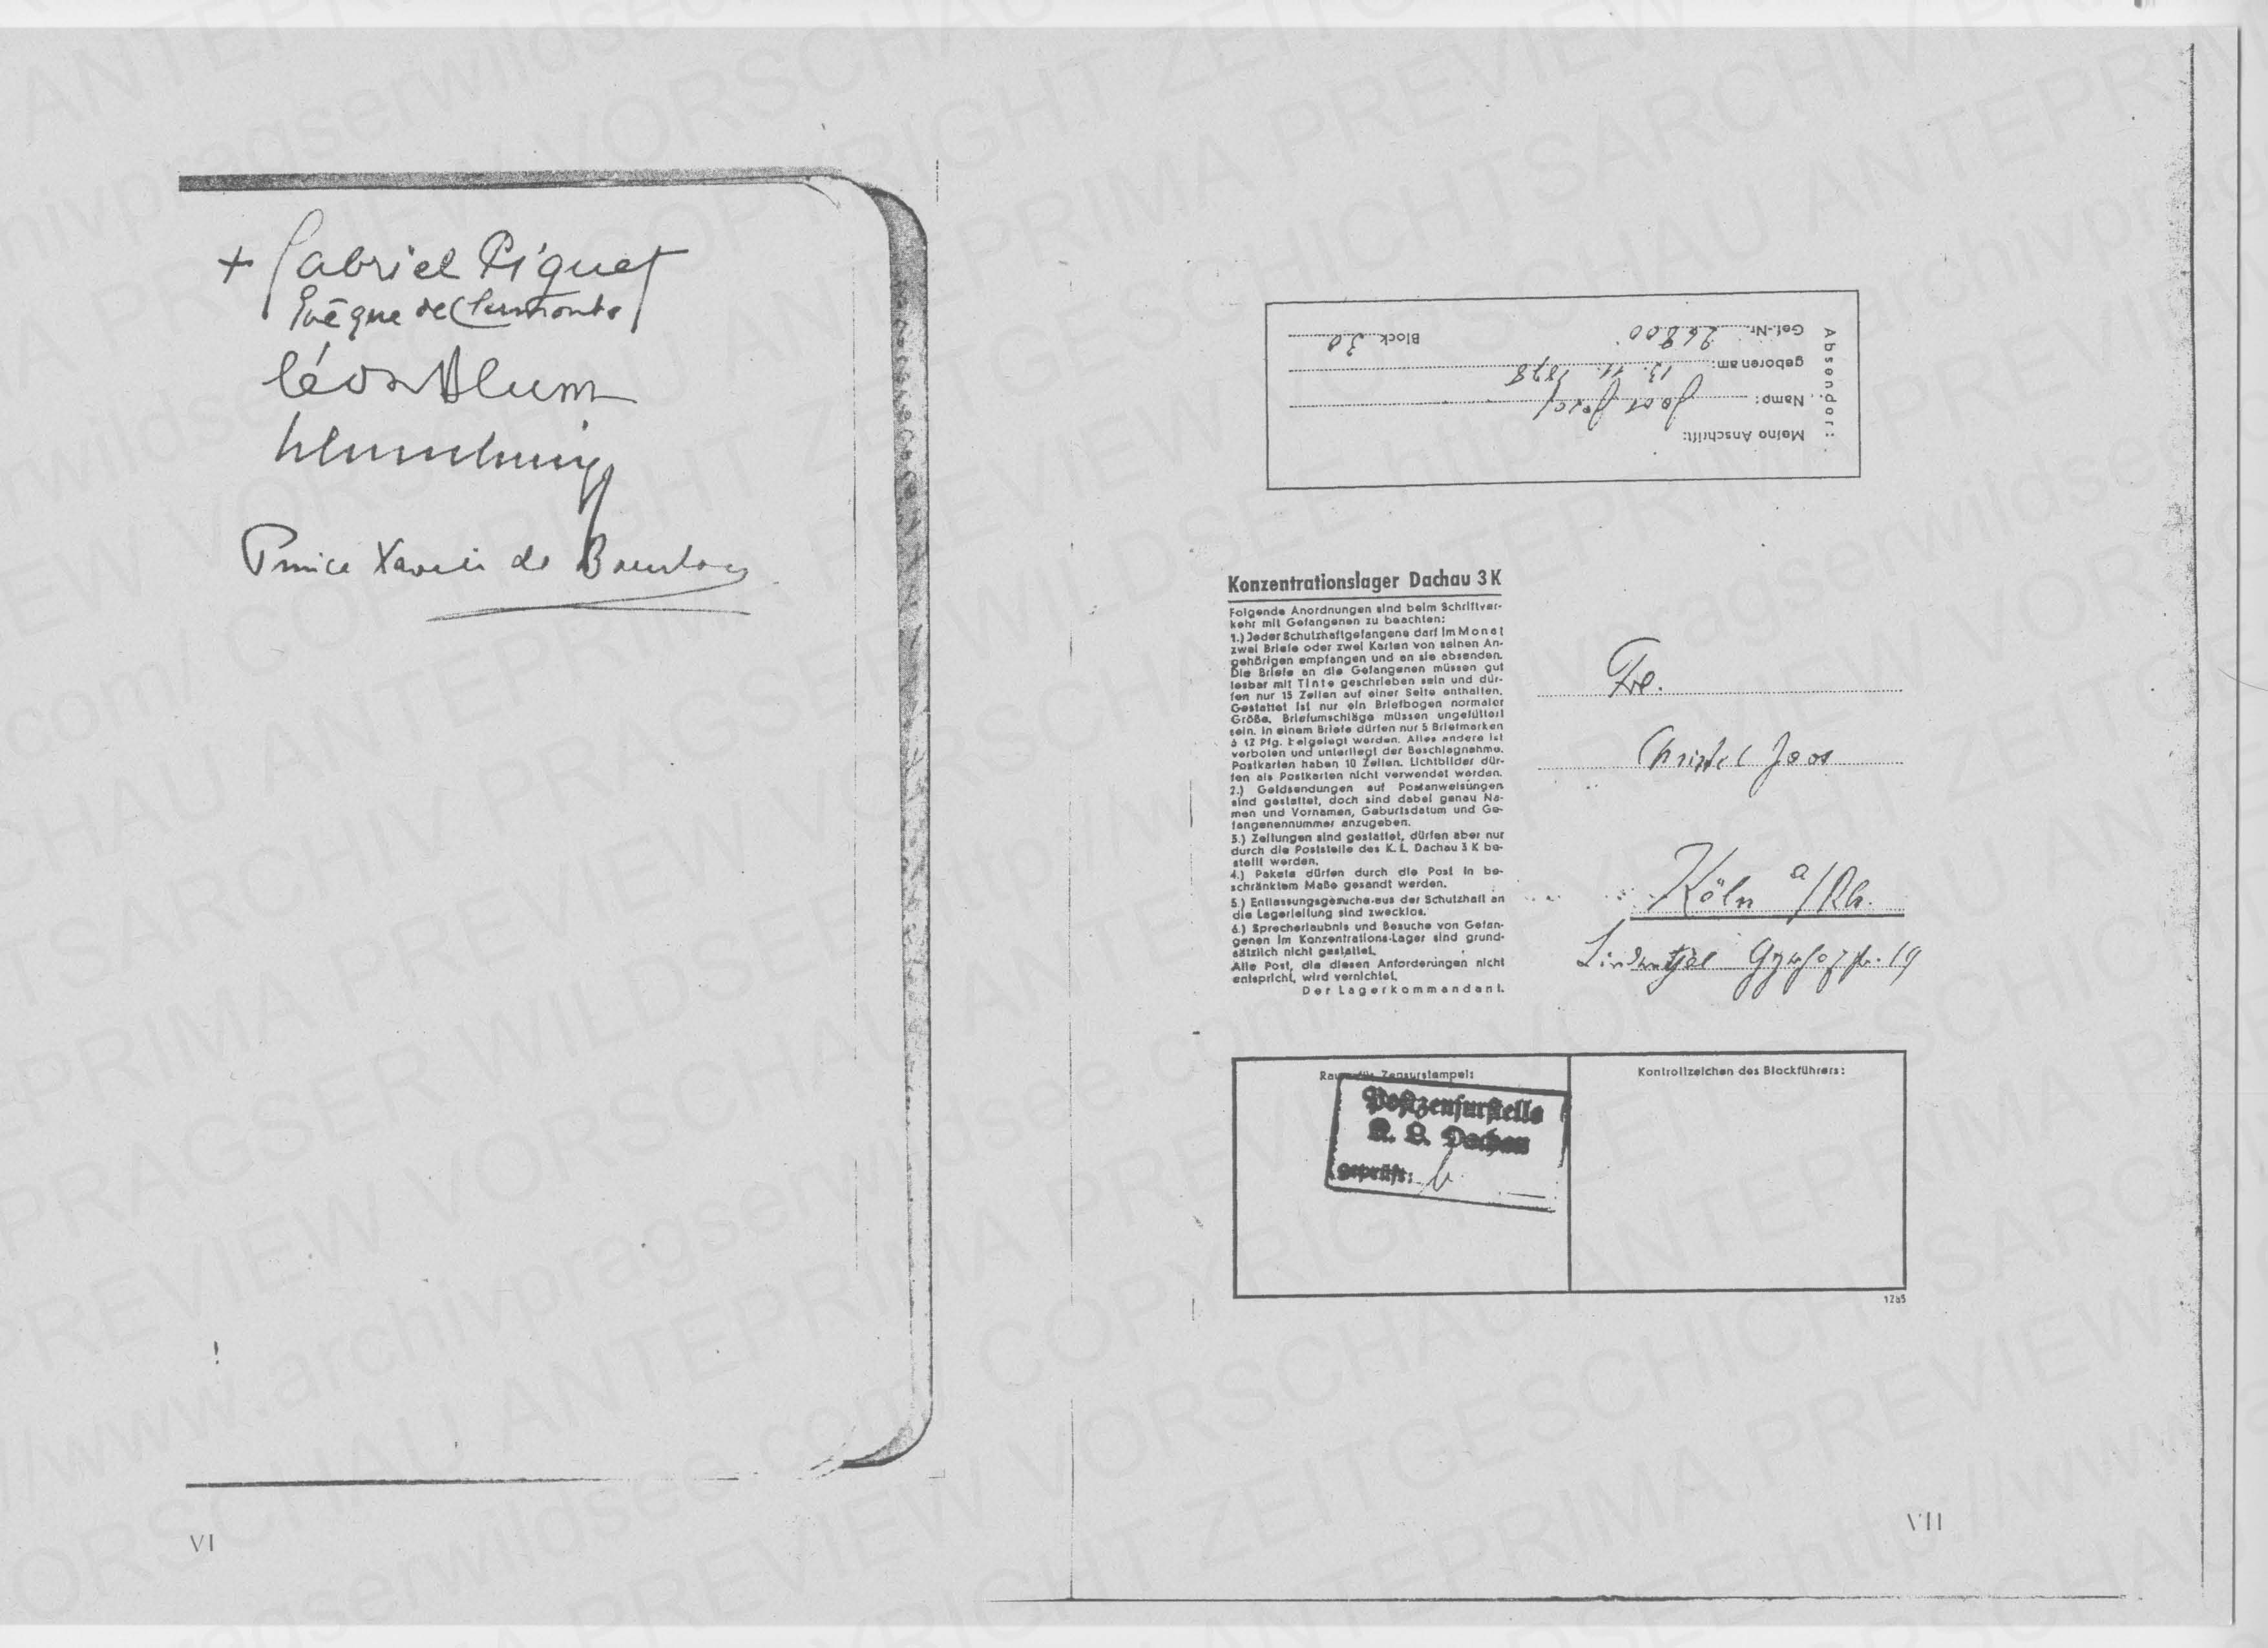 + Gabriel Piguet
Evêque de Clermont
Léon Blum
Prince Xavier de Bourbon
VI
Absender:
Meine Anschrift:
Name: Joos Josef
geboren am: 13. 11. 1878
Gef.-Nr. 26800 Block 30
Konzentrationslager Dachau 3 K
Folgende Anordnungen sind beim Schriftver-
kehr mit Gefangenen zu beachten:
1.) Jeder Schutzhaftgefangene darf im Monat
zwei Briefe oder zwei Karten von seinen An-
gehörigen empfangen und an sie absenden.
Die Briefe an die Gefangenen müssen gut
lesbar mit Tinte geschrieben sein und dür-
fen nur 15 Zeilen auf einer Seite enthalten.
Gestattet ist nur ein Briefbogen normaler
Größe. Briefumschläge müssen ungefüttert
sein. In einem Briefe dürfen nur 5 Briefmarken
à 12 Pfg. beigelegt werden. Alles andere ist
verboten und unterliegt der Beschlagnahme.
Postkarten haben 10 Zeilen. Lichtbilder dür-
fen als Postkarten nicht verwendet werden.
2.) Geldsendungen auf Postanweisungen
sind gestattet, doch sind dabei genau Na-
men und Vornamen, Geburtsdatum und Ge-
fangenennummer anzugeben.
3.) Zeitungen sind gestattet, dürfen aber nur
durch die Poststelle des K. L. Dachau 3 K be-
stellt werden.
4.) Pakete dürfen durch die Post in be-
schränktem Maße gesandt werden.
5.) Entlassungsgesuche aus der Schutzhaft an
die Lagerleitung sind zwecklos.
6.) Sprecherlaubnis und Besuche von Gefan-
genen im Konzentrations-Lager sind grund-
sätzlich nicht gestattet.
Alle Post, die diesen Anforderungen nicht
entspricht, wird vernichtet.
Der Lagerkommandant.
Christel Joos
Köln a/Rh.
Lindenthal 19
Raum für Zensurstempel:
Kontrollzeichen des Blockführers:
Postzensurstelle
K. L. Dachau
geprüft:
1285
VII